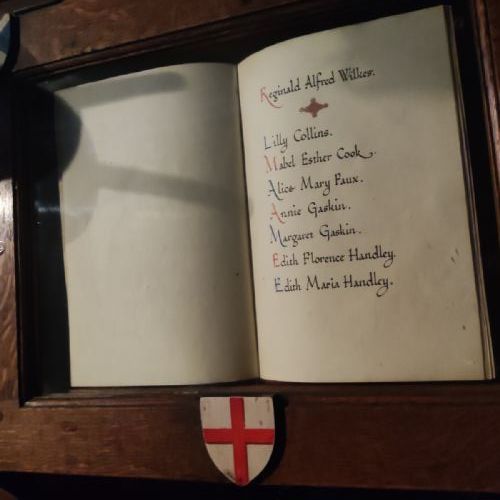 Reginald Alfred Wilkes.
Lilly Collins.
Mabel Esther Cook.
Alice Mary Faux.
Annie Gaskin.
Margaret Gaskin.
Edith Florence Handley.
Edith Maria Handley.